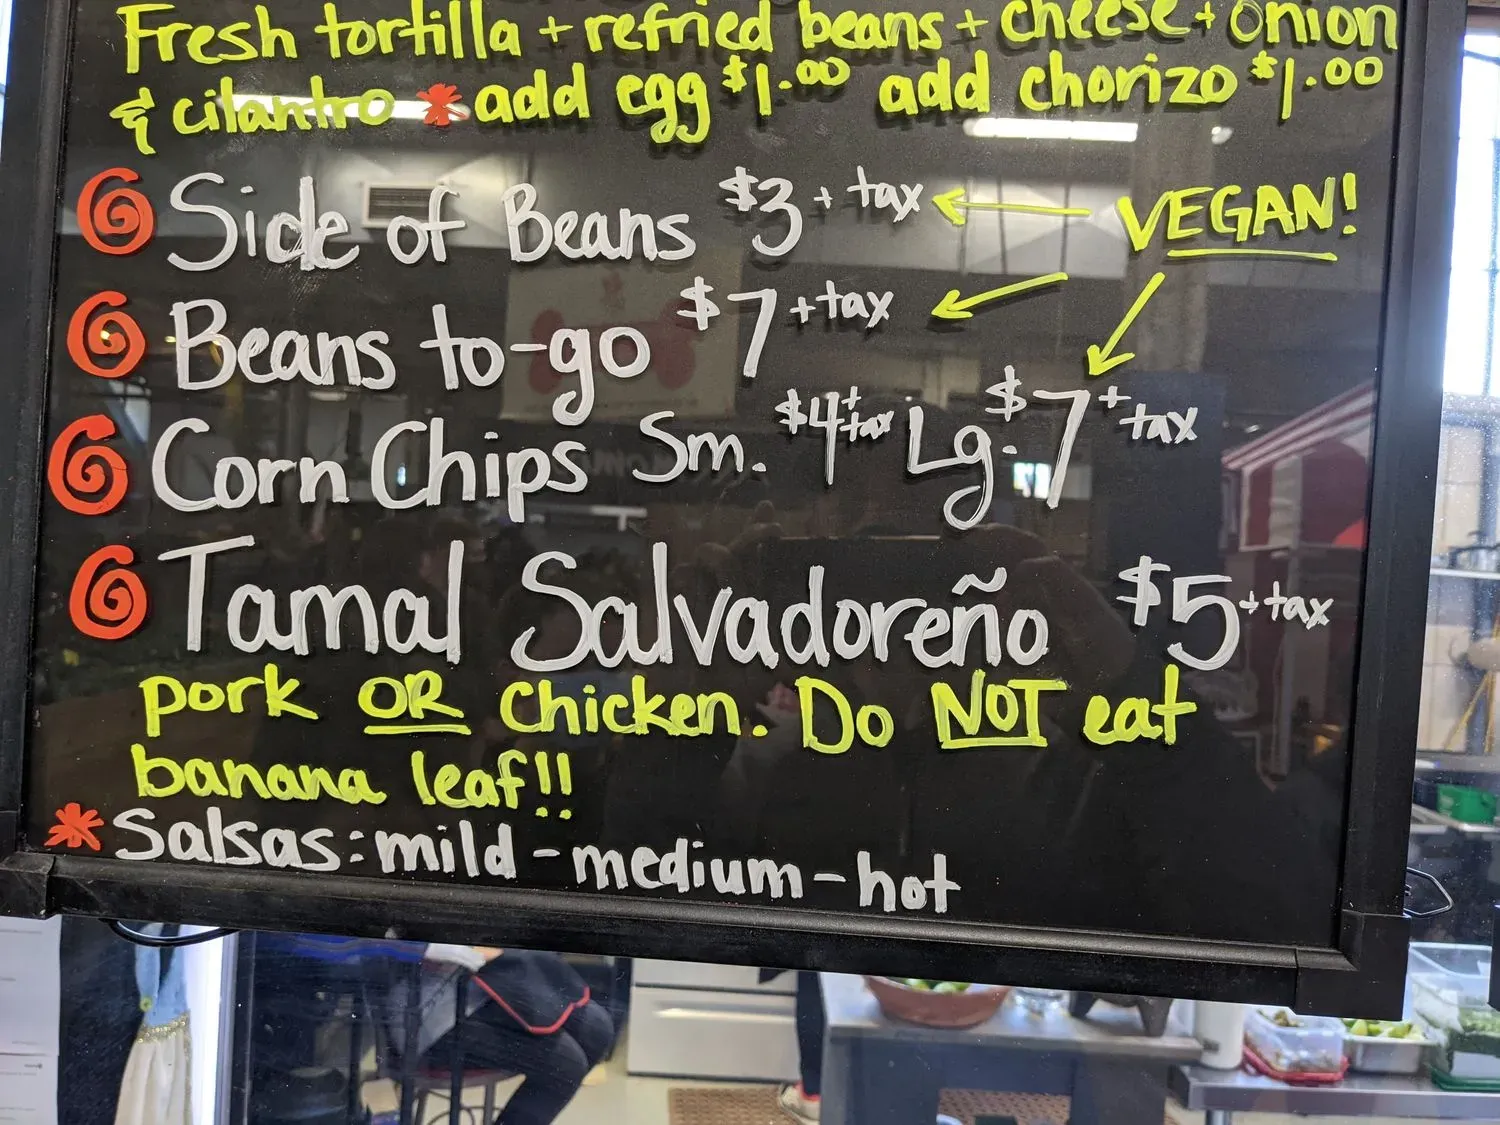 Fresh tortilla + refried beans + cheese + onion
& cilantro * add egg $1.00 add chorizo $1.00
Side of Beans $3 + tax VEGAN!
Beans to-go $7 + tax
Corn Chips Sm. $4 + tax Lg. $7 + tax
Tamal Salvadoreño $5 + tax
pork OR chicken. Do NOT eat
banana leaf!!
* Salsas: mild - medium - hot